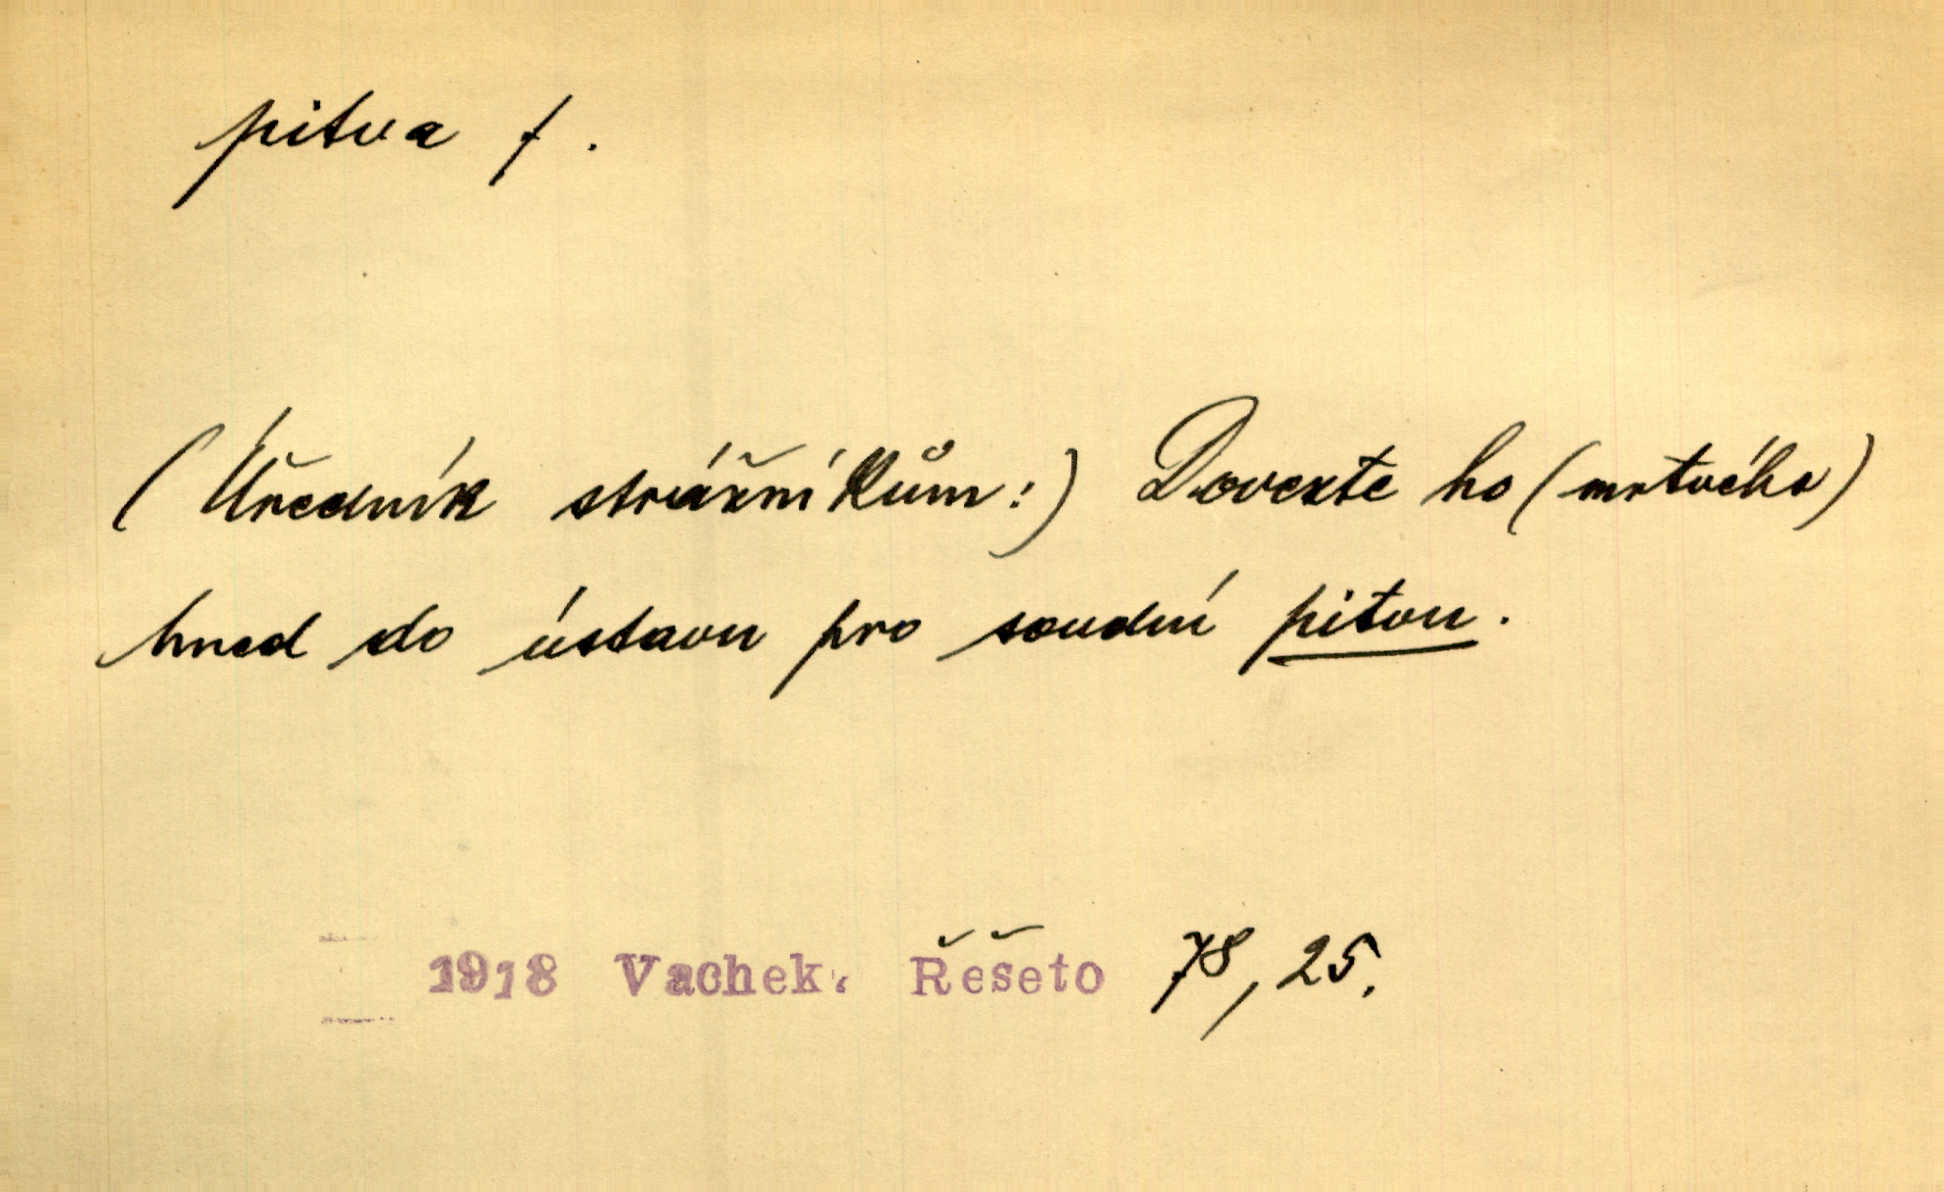 pitva f.
(Úředník strážníkům:) Dovezte ho (mrtvého)
hned do ústavu pro soudní pitvu.
1918 Vachek. Řešeto 78, 25.